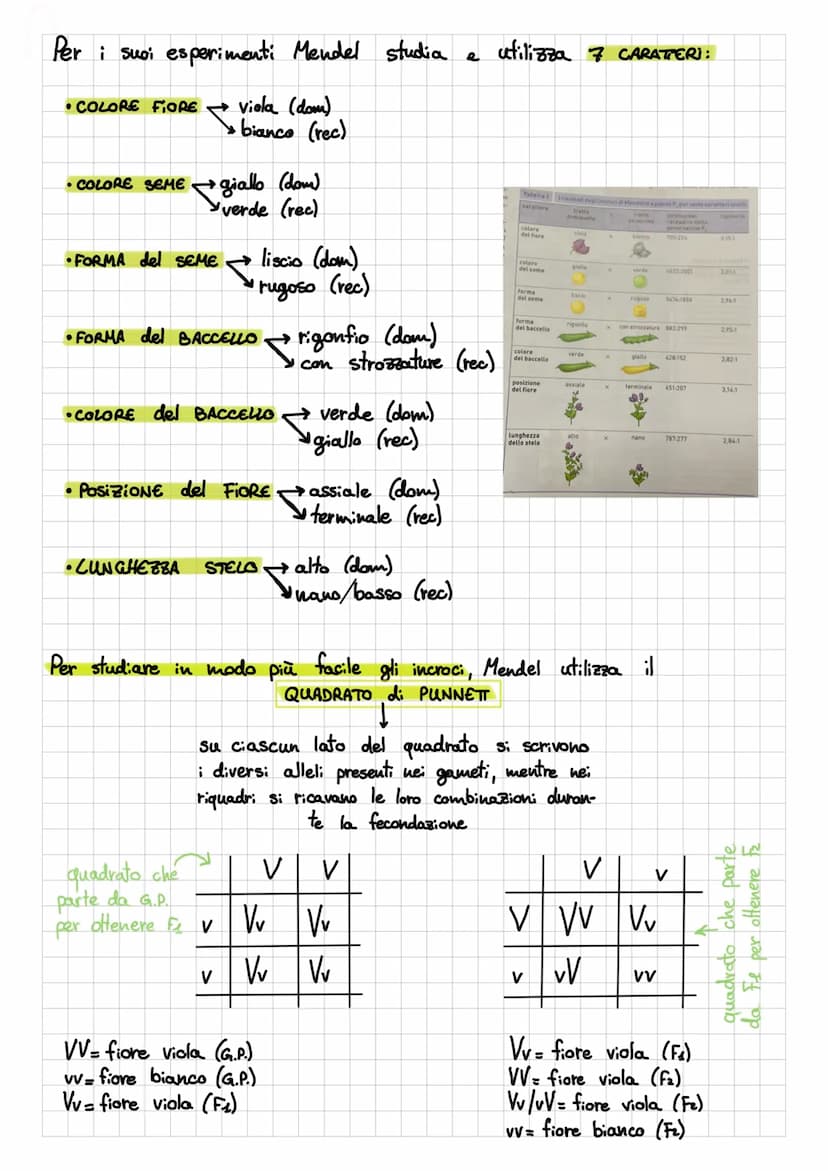 Per i suoi esperimenti Mendel studia e utilizza 7 CARATTERI:
• COLORE FIORE → viola (dom)
↘ bianco (rec)
• COLORE SEME → giallo (dom)
↘ verde (rec)
• FORMA del SEME → liscio (dom)
↘ rugoso (rec)
• FORMA del BACCELLO → rigonfio (dom)
↘ con strozzature (rec)
• COLORE del BACCELLO → verde (dom)
↘ giallo (rec)
• POSIZIONE del FIORE → assiale (dom)
↘ terminale (rec)
• LUNGHEZZA STELO → alto (dom)
↘ nano/basso (rec)
Tabella 1
carattere
tratto dominante
colore del fiore viola x bianco 705:224
colore del seme giallo x verde
forma del seme liscio x rugoso
forma del baccello rigonfio x con strozzature 882:299 2,95:1
colore del baccello verde x giallo 428:152 2,82:1
posizione del fiore assiale x terminale 651:207 3,14:1
lunghezza dello stelo alto x nano 787:277 2,84:1
Per studiare in modo più facile gli incroci, Mendel utilizza il
QUADRATO di PUNNETT
↓
su ciascun lato del quadrato si scrivono
i diversi alleli presenti nei gameti, mentre nei
riquadri si ricavano le loro combinazioni duran-
te la fecondazione
quadrato che
parte da G.P.
per ottenere F1
V V
v Vv Vv
v Vv Vv
V v
V VV Vv
v vV vv
quadrato che parte
da F1 per ottenere F2
VV = fiore viola (G.P.)
vv = fiore bianco (G.P.)
Vv = fiore viola (F1)
Vv = fiore viola (F1)
VV = fiore viola (F2)
Vv/vV = fiore viola (F2)
vv = fiore bianco (F2)